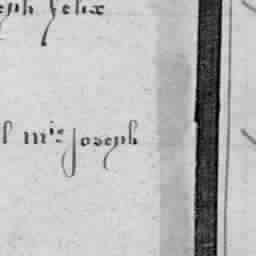 eph felix
l mie joseph